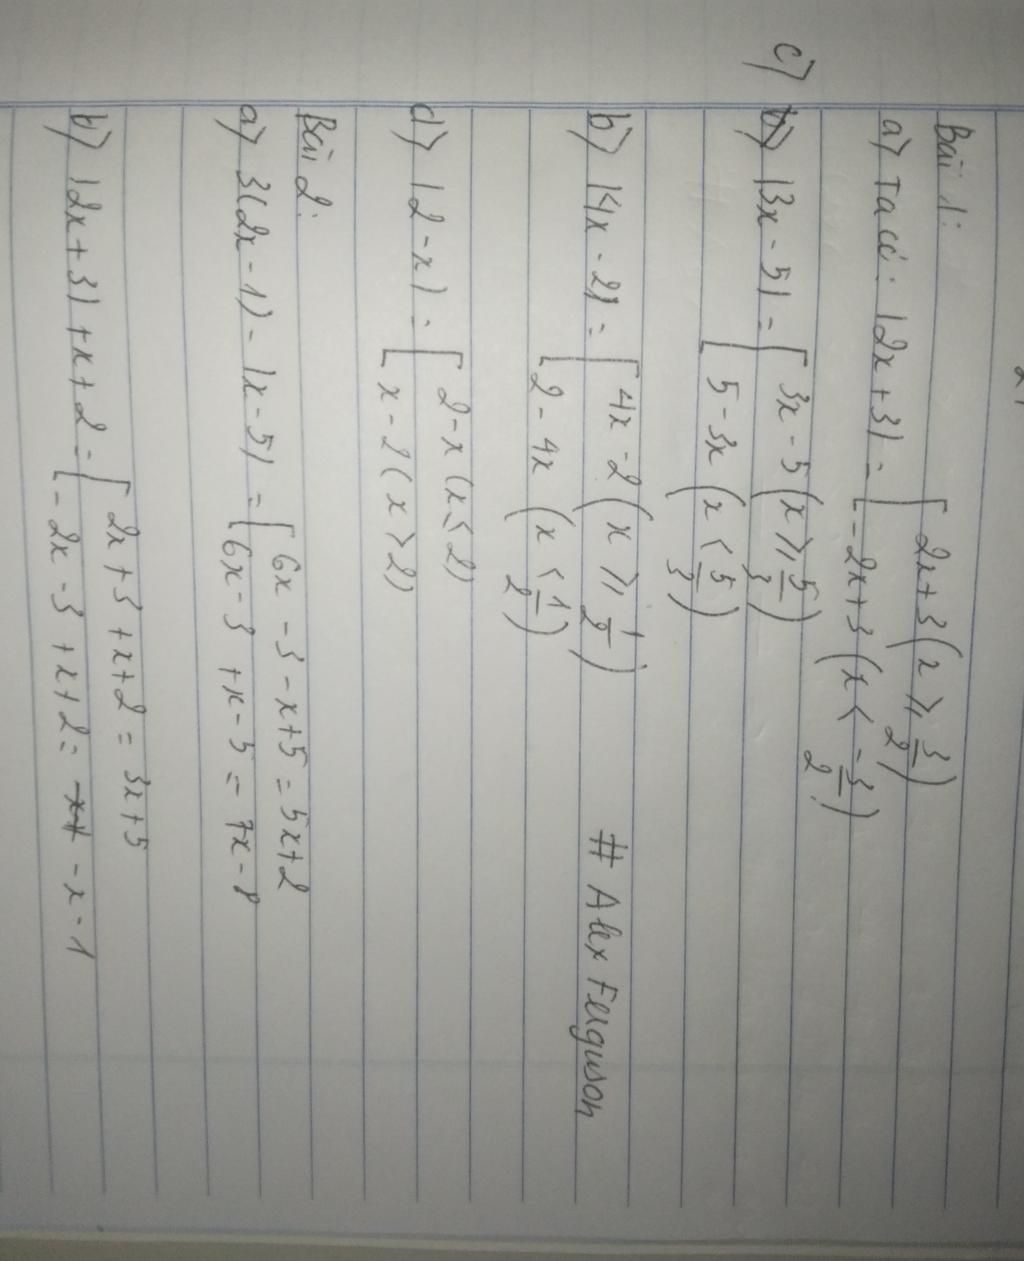 Bài 1:
a) Ta có: |2x+3| = [ 2x+3 (x ≥ 3/2)
- 2x+3 (x < -3/2)
c) |3x - 5| = [ 3x - 5 (x ≥ 5/3)
5 - 3x (x < 5/3)
b) |4x - 2| = [ 4x - 2 (x ≥ 1/2)
2 - 4x (x < 1/2)
# Alex Ferguson
d) |2 - x| = [ 2 - x (x ≤ 2)
x - 2 (x > 2)
Bài 2:
a) 3(2x - 1) - |x - 5| = [ 6x - 3 - x + 5 = 5x + 2
6x - 3 + x - 5 = 7x - 8
b) |2x + 3| + x + 2 = [ 2x + 3 + x + 2 = 3x + 5
- 2x - 3 + x + 2 = - x - 1